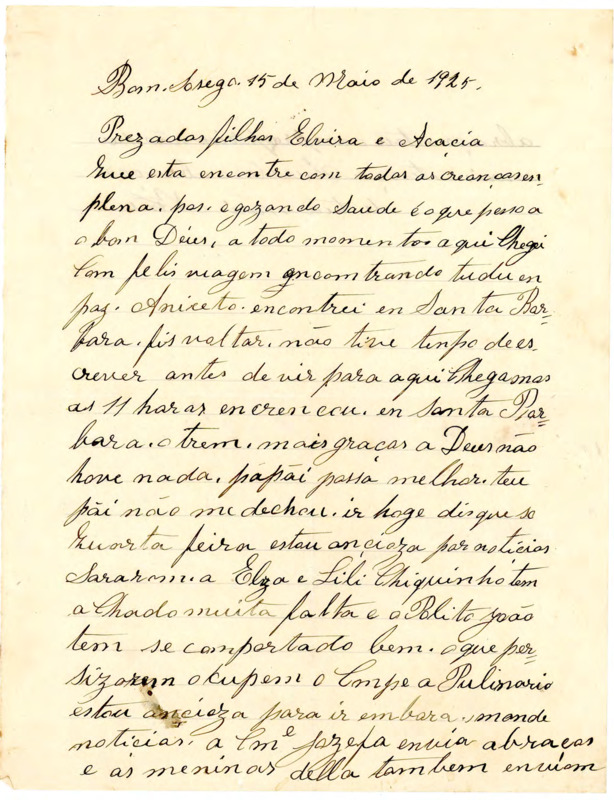 Bom. Socego. 15 de Maio de 1925.
Prezadas filhas Elvira e Acacia
Que esta encontre com todas as creanças en
plena. pas. e gozando saude é o que pesso a
o bom Déus, a todo momento. aqui cheguei
com felis viagem encomtrando tudu en
paz. Aniceto. encontrei en Santa Bar=
bara. fis voltar. não tive tenpo de es=
crever antes de vir para aqui chegamos
as 11 horas encrencou. en Santa Bar=
bara. o trem. mais graças a Deus não
hove nada. pápái passa melhor. teu
pái não me dechou. ir hoge dis que so
Quarta feira estou ancioza por noticias
Sararam. a Elza e Lili Chiquinho tem
a chado muita falta e o Polito João
tem se comportado bem. o que per=
sizarem ocupem o Cmpe a Pulinario
estou ancioza para ir embora. mande
noticias. a Cmᵉ Jozefa envia abraços
e as meninas della tambem enviam